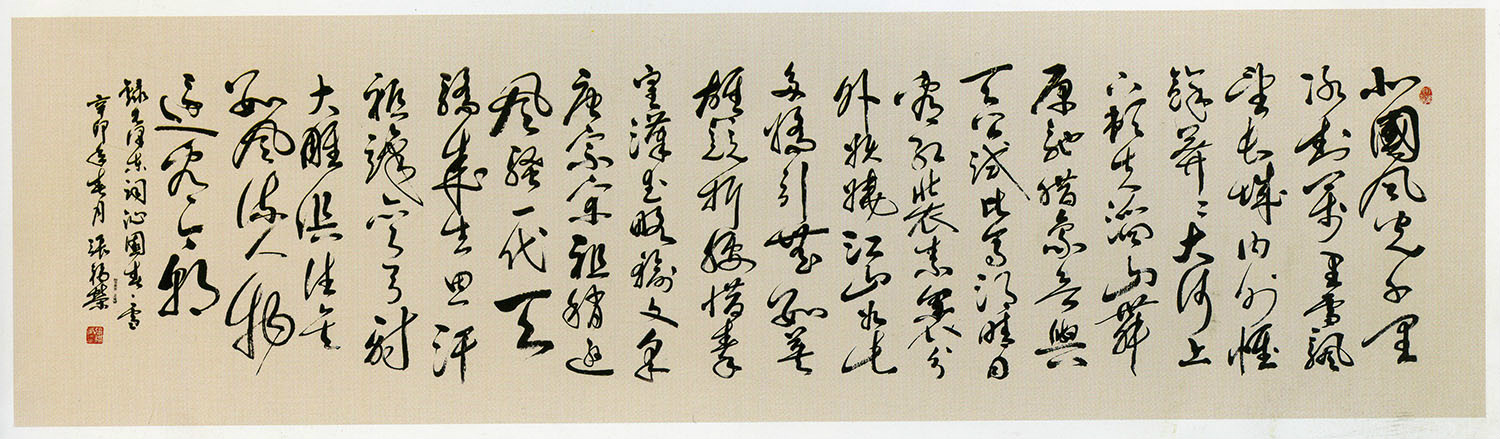 北國風光千里
冰封萬里雪飄
望長城內外惟
餘莽〻大河上
下頓失滔〻山舞
原馳腊象欲與
天公試比高須晴日
看紅裝素裹分
外妖嬈江山如此
多嬌引無數英
雄競折腰惜秦
皇漢武略輸文采
唐宗宋祖稍遜
風騷一代天
驕成吉思汗
祗識彎弓射
大雕俱往矣
數風流人物
還看今朝
錄毛澤東詞沁園春雪
辛卯年春月張